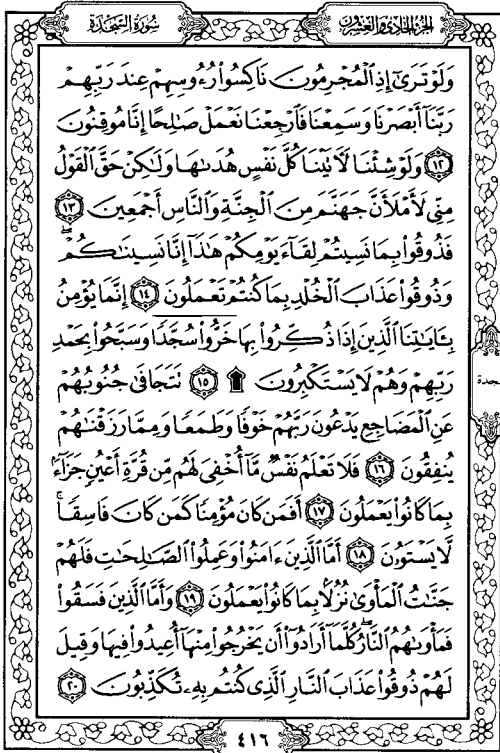 سُورَةُ السَّجْدَةِ
الجُزْءُ الحَادِي وَالعِشْرُونَ
وَلَوْ تَرَىٰٓ إِذِ ٱلْمُجْرِمُونَ نَاكِسُوا۟ رُءُوسِهِمْ عِندَ رَبِّهِمْ
رَبَّنَآ أَبْصَرْنَا وَسَمِعْنَا فَٱرْجِعْنَا نَعْمَلْ صَٰلِحًا إِنَّا مُوقِنُونَ
١٢ وَلَوْ شِئْنَا لَءَاتَيْنَا كُلَّ نَفْسٍ هُدَىٰهَا وَلَٰكِنْ حَقَّ ٱلْقَوْلُ
مِنِّى لَأَمْلَأَنَّ جَهَنَّمَ مِنَ ٱلْجِنَّةِ وَٱلنَّاسِ أَجْمَعِينَ ١٣
فَذُوقُوا۟ بِمَا نَسِيتُمْ لِقَآءَ يَوْمِكُمْ هَٰذَآ إِنَّا نَسِينَٰكُمْ ۖ
وَذُوقُوا۟ عَذَابَ ٱلْخُلْدِ بِمَا كُنتُمْ تَعْمَلُونَ ١٤ إِنَّمَا يُؤْمِنُ
بِـَٔايَٰتِنَا ٱلَّذِينَ إِذَا ذُكِّرُوا۟ بِهَا خَرُّوا۟ سُجَّدًا وَسَبَّحُوا۟ بِحَمْدِ
رَبِّهِمْ وَهُمْ لَا يَسْتَكْبِرُونَ ۩ ١٥ تَتَجَافَىٰ جُنُوبُهُمْ
عَنِ ٱلْمَضَاجِعِ يَدْعُونَ رَبَّهُمْ خَوْفًا وَطَمَعًا وَمِمَّا رَزَقْنَٰهُمْ
يُنفِقُونَ ١٦ فَلَا تَعْلَمُ نَفْسٌ مَّآ أُخْفِىَ لَهُم مِّن قُرَّةِ أَعْيُنٍ جَزَآءًۢ
بِمَا كَانُوا۟ يَعْمَلُونَ ١٧ أَفَمَن كَانَ مُؤْمِنًا كَمَن كَانَ فَاسِقًا ۚ
لَّا يَسْتَوُۥنَ ١٨ أَمَّا ٱلَّذِينَ ءَامَنُوا۟ وَعَمِلُوا۟ ٱلصَّٰلِحَٰتِ فَلَهُمْ
جَنَّٰتُ ٱلْمَأْوَىٰ نُزُلًۢا بِمَا كَانُوا۟ يَعْمَلُونَ ١٩ وَأَمَّا ٱلَّذِينَ فَسَقُوا۟
فَمَأْوَىٰهُمُ ٱلنَّارُ ۖ كُلَّمَآ أَرَادُوٓا۟ أَن يَخْرُجُوا۟ مِنْهَآ أُعِيدُوا۟ فِيهَا وَقِيلَ
لَهُمْ ذُوقُوا۟ عَذَابَ ٱلنَّارِ ٱلَّذِى كُنتُم بِهِۦ تُكَذِّبُونَ ٢٠
٤١٦